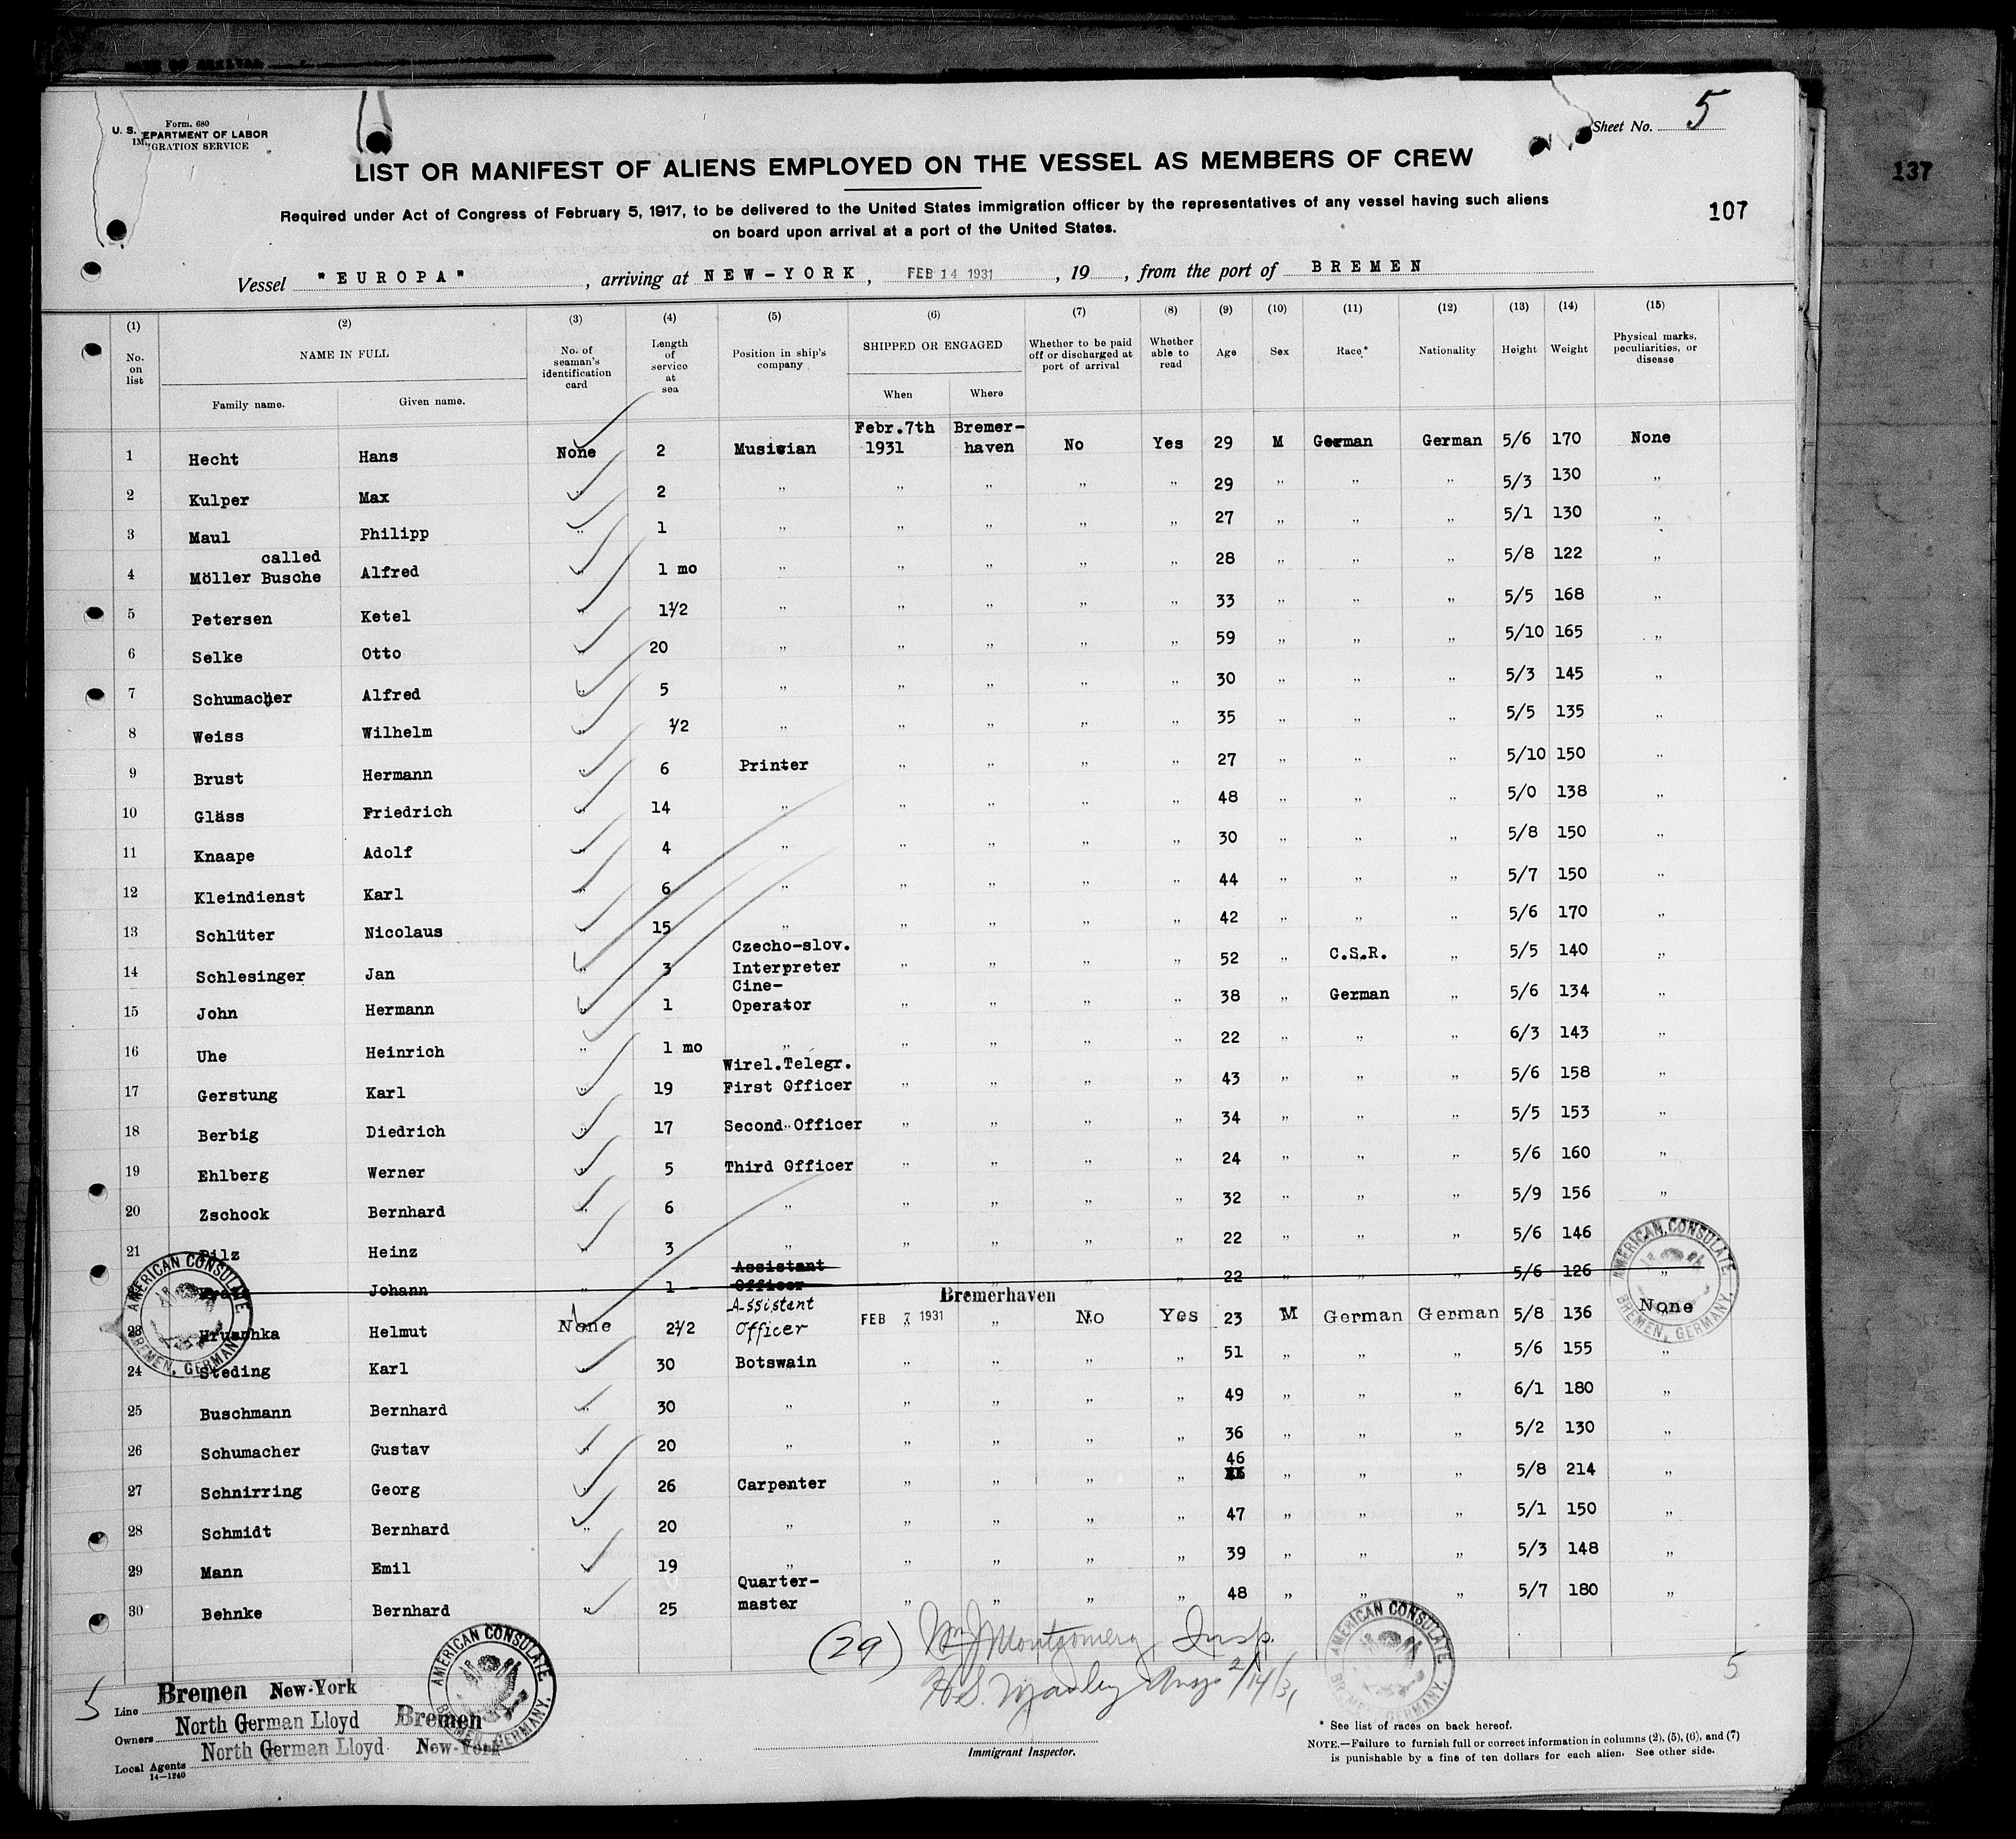 Form. 680
U. S. DEPARTMENT OF LABOR
IMMIGRATION SERVICE
Sheet No. 5
137
LIST OR MANIFEST OF ALIENS EMPLOYED ON THE VESSEL AS MEMBERS OF CREW
Required under Act of Congress of February 5, 1917, to be delivered to the United States immigration officer by the representatives of any vessel having such aliens
on board upon arrival at a port of the United States.
107
Vessel "EUROPA", arriving at NEW-YORK, FEB 14 1931, 19, from the port of BREMEN
(1) (2) (3) (4) (5) (6) (7) (8) (9) (10) (11) (12) (13) (14) (15)
No. on list NAME IN FULL Family name. Given name. No. of seaman's identification card Length of service at sea Position in ship's company SHIPPED OR ENGAGED When Where Whether to be paid off or discharged at port of arrival Whether able to read Age Sex Race* Nationality Height Weight Physical marks, peculiarities, or disease
1 Hecht Hans None 2 Musician Febr.7th 1931 Bremer-haven No Yes 29 M German German 5/6 170 None
2 Kulper Max " 2 " " " " " 29 " " " 5/3 130 "
3 Maul Philipp " 1 " " " " " 27 " " " 5/1 130 "
4 Möller called Busche Alfred " 1 mo " " " " " 28 " " " 5/8 122 "
5 Petersen Ketel " 1½ " " " " " 33 " " " 5/5 168 "
6 Selke Otto " 20 " " " " " 59 " " " 5/10 165 "
7 Schumacher Alfred " 5 " " " " " 30 " " " 5/3 145 "
8 Weiss Wilhelm " ½ " " " " " 35 " " " 5/5 135 "
9 Brust Hermann " 6 Printer " " " " 27 " " " 5/10 150 "
10 Gläss Friedrich " 14 " " " " " 48 " " " 5/0 138 "
11 Knaape Adolf " 4 " " " " " 30 " " " 5/8 150 "
12 Kleindienst Karl " 6 " " " " " 44 " " " 5/7 150 "
13 Schlüter Nicolaus " 15 " " " " " 42 " " " 5/6 170 "
14 Schlesinger Jan " 3 Czecho-slov. Interpreter " " " " 52 " C.S.R. " 5/5 140 "
15 John Hermann " 1 Cine-Operator " " " " 38 " German " 5/6 134 "
16 Uhe Heinrich " 1 mo " " " " " 22 " " " 6/3 143 "
17 Gerstung Karl " 19 Wirel.Telegr. First Officer " " " " 43 " " " 5/6 158 "
18 Berbig Diedrich " 17 Second Officer " " " " 34 " " " 5/5 153 "
19 Ehlberg Werner " 5 Third Officer " " " " 24 " " " 5/6 160 "
20 Zschock Bernhard " 6 " " " " " 32 " " " 5/9 156 "
21 Pilz Heinz " 3 " " " " " 22 " " " 5/6 146 "
Johann 1 Assistant Officer " " " " 22 " " " 5/6 126 "
23 Hruschka Helmut None 2½ Assistant Officer FEB 7 1931 Bremerhaven " No Yes 23 M German German 5/8 136 None
24 Steding Karl " 30 Botswain " " " " 51 " " " 5/6 155 "
25 Buschmann Bernhard " 30 " " " " " 49 " " " 6/1 180 "
26 Schumacher Gustav " 20 " " " " " 36 " " " 5/2 130 "
27 Schnirring Georg " 26 Carpenter " " " " 46 " " " 5/8 214 "
28 Schmidt Bernhard " 20 " " " " " 47 " " " 5/1 150 "
29 Mann Emil " 19 " " " " " 39 " " " 5/3 148 "
30 Behnke Bernhard " 25 Quarter-master " " " " 48 " " " 5/7 180 "
AMERICAN CONSULATE BREMEN, GERMANY.
AMERICAN CONSULATE BREMEN, GERMANY.
AMERICAN CONSULATE BREMEN, GERMANY.
AMERICAN CONSULATE BREMEN, GERMANY.
(29) Wm J Montgomery Insp.
H.S. Manley 2/14/31
5
5
Line Bremen New-York
Owners North German Lloyd Bremen
Local Agents North German Lloyd New-York
14—1240
Immigrant Inspector.
* See list of races on back hereof.
NOTE.—Failure to furnish full or correct information in columns (2), (5), (6), and (7)
is punishable by a fine of ten dollars for each alien. See other side.